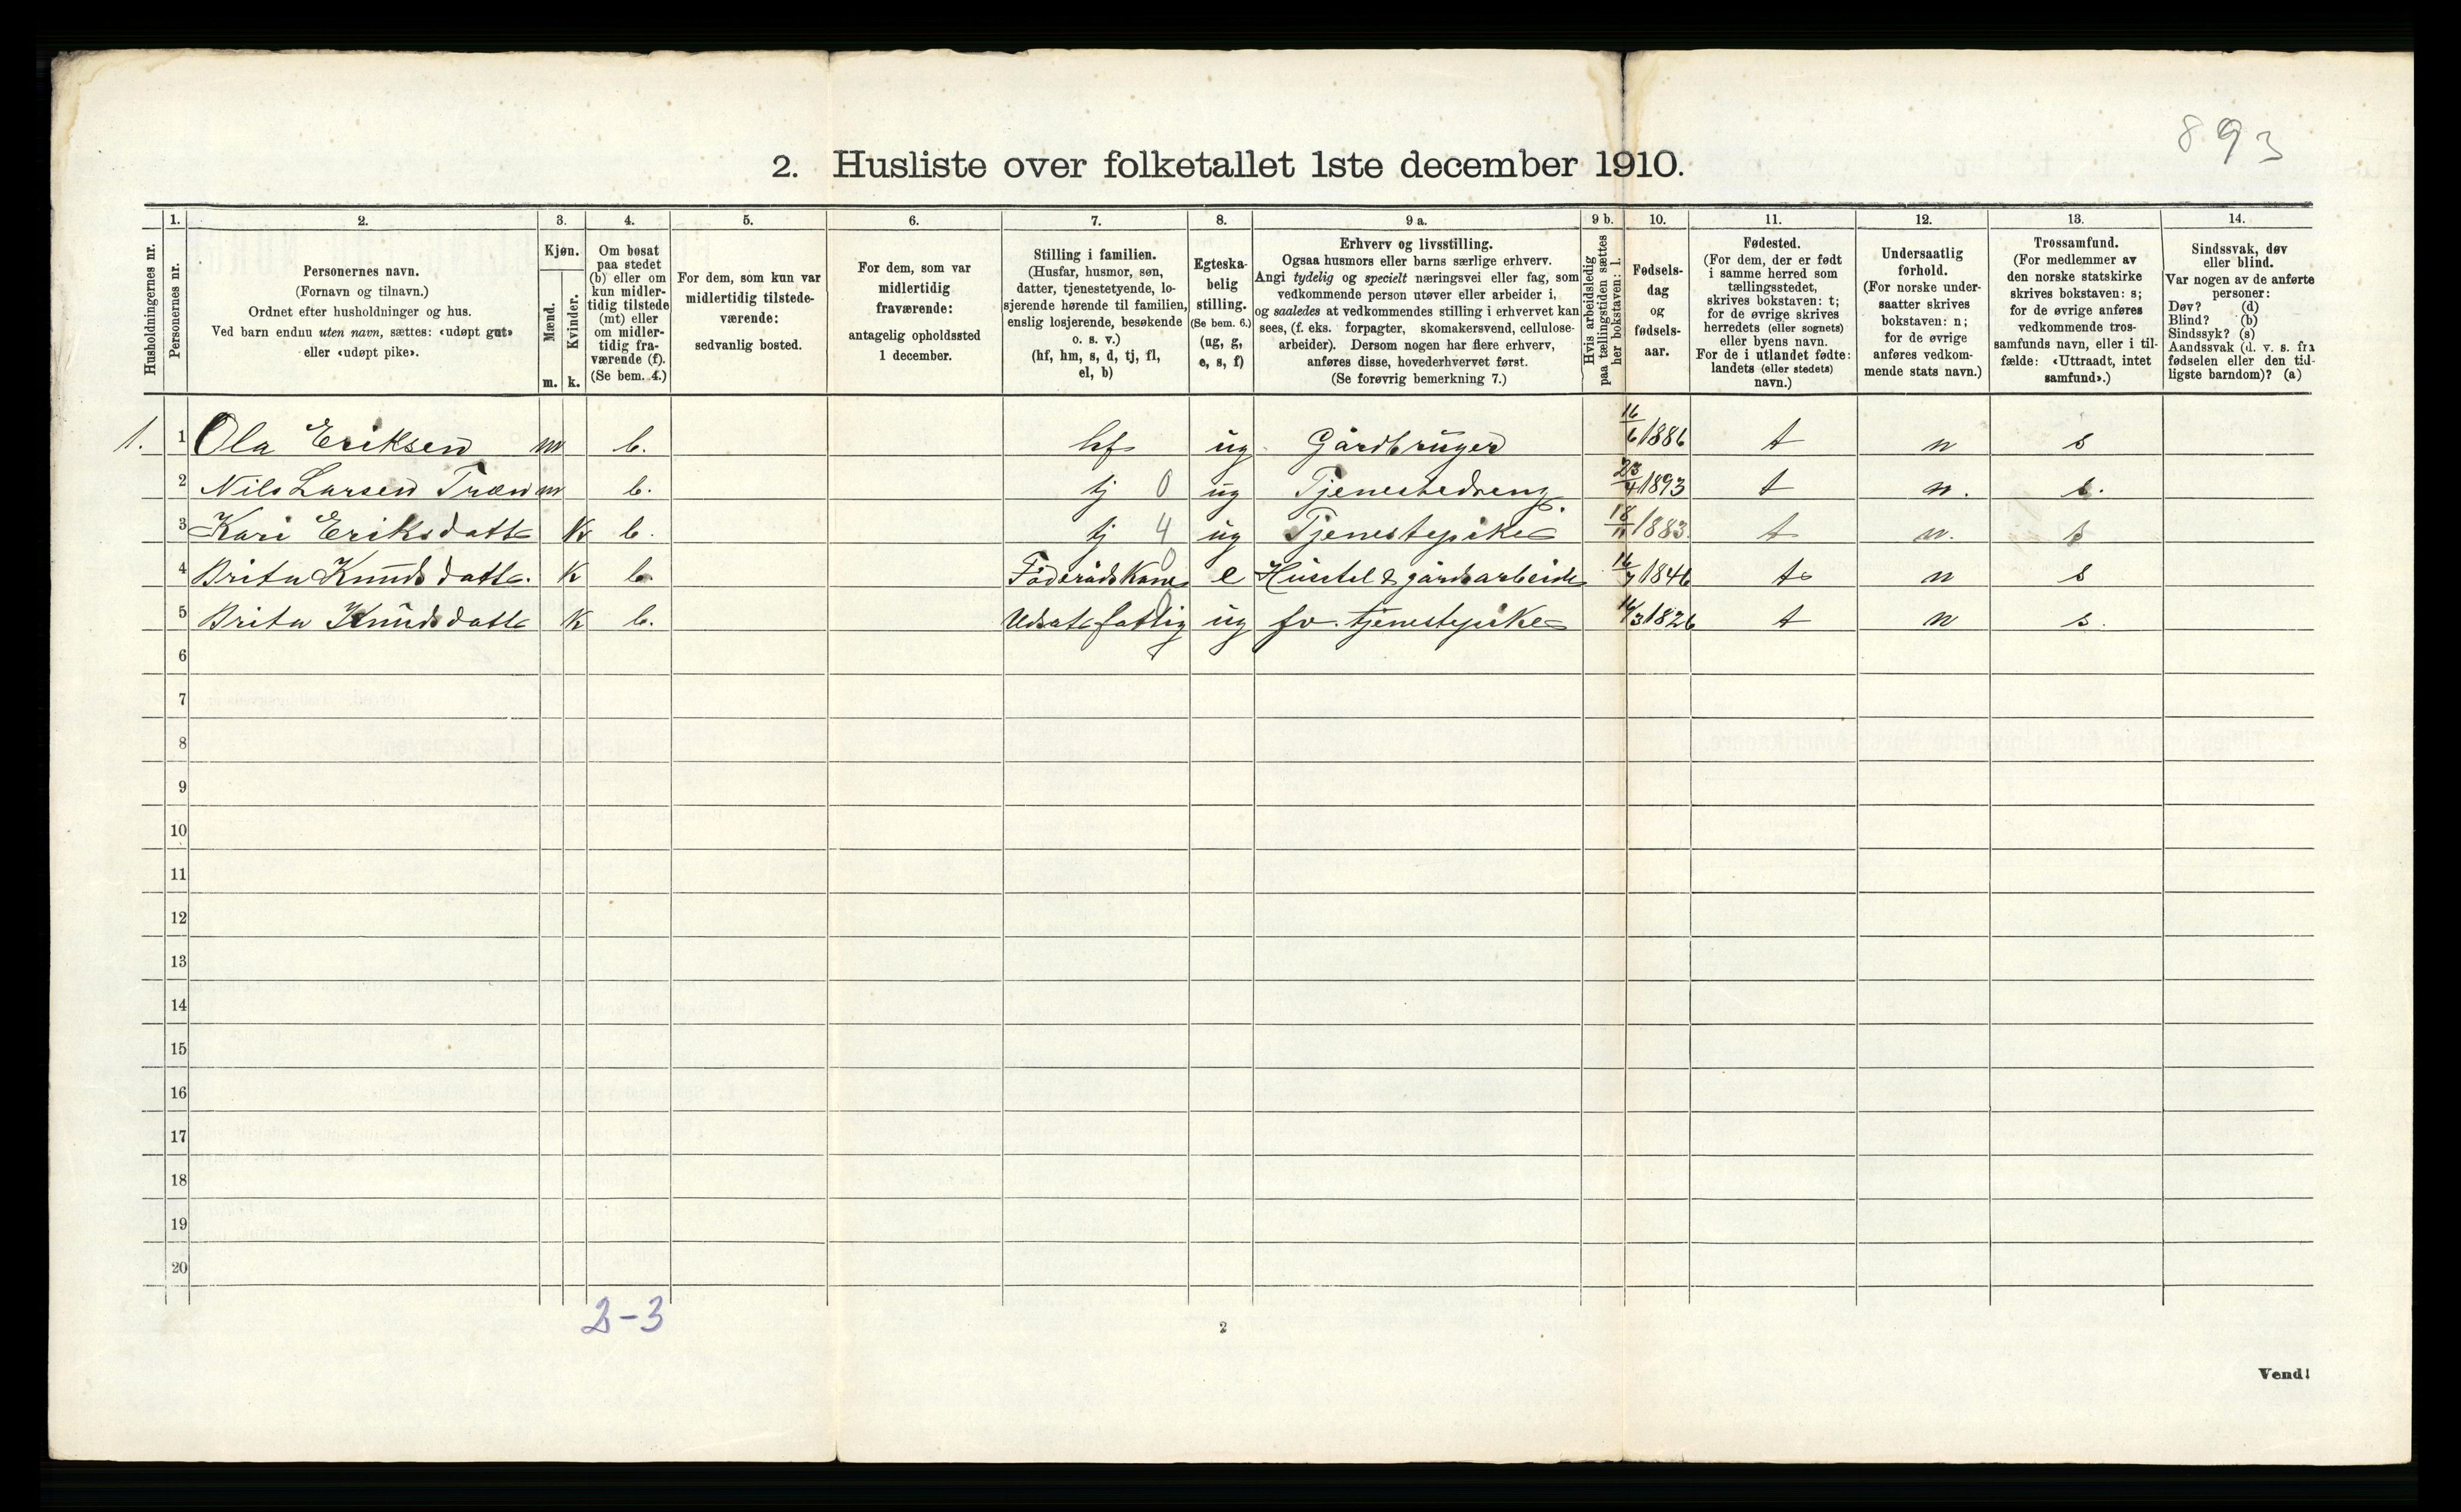 893
2. Husliste over folketallet 1ste december 1910.
Husholdningernes nr.
1.
Personernes nr.
2.
Personernes navn.
(Fornavn og tilnavn.)
Ordnet efter husholdninger og hus.
Ved barn endnu uten navn, sættes: «udøpt gut»
eller «udøpt pike».
3.
Kjøn.
Mænd.
Kvinder.
m. k.
4.
Om bosat
paa stedet
(b) eller om
kun midler-
tidig tilstede
(mt) eller
om midler-
tidig fra-
værende (f).
(Se bem. 4.)
5.
For dem, som kun var
midlertidig tilstede-
værende:
sedvanlig bosted.
6.
For dem, som var
midlertidig
fraværende:
antagelig opholdssted
1 december.
7.
Stilling i familien.
(Husfar, husmor, søn,
datter, tjenestetyende, lo-
sjerende hørende til familien,
enslig losjerende, besøkende
o. s. v.)
(hf, hm, s, d, tj, fl,
el, b)
8.
Egteska-
belig
stilling.
(Se bem. 6.)
(ug, g,
e, s, f)
9 a.
Erhverv og livsstilling.
Ogsaa husmors eller barns særlige erhverv.
Angi tydelig og specielt næringsvei eller fag, som
vedkommende person utøver eller arbeider i,
og saaledes at vedkommendes stilling i erhvervet kan
sees, (f. eks. forpagter, skomakersvend, cellulose-
arbeider). Dersom nogen har flere erhverv,
anføres disse, hovederhvervet først.
(Se forøvrig bemerkning 7.)
9 b.
Hvis arbeidsledig
paa tællingstiden sættes
her bokstaven: l.
10.
Fødsels-
dag
og
fødsels-
aar.
11.
Fødested.
(For dem, der er født
i samme herred som
tællingsstedet,
skrives bokstaven: t;
for de øvrige skrives
herredets (eller sognets)
eller byens navn.
For de i utlandet fødte:
landets (eller stedets)
navn.)
12.
Undersaatlig
forhold.
(For norske under-
saatter skrives
bokstaven: n;
for de øvrige
anføres vedkom-
mende stats navn.)
13.
Trossamfund.
(For medlemmer av
den norske statskirke
skrives bokstaven: s;
for de øvrige anføres
vedkommende tros-
samfunds navn, eller i til-
fælde: «Uttraadt, intet
samfund».)
14.
Sindssvak, døv
eller blind.
Var nogen av de anførte
personer:
Døv? (d)
Blind? (b)
Sindssyk? (s)
Aandssvak (d. v. s. fra
fødselen eller den tid-
ligste barndom)? (a)
1. 1 Ola Eriksen m b. hf ug Gårdbruger 16/6 1886 t n s
2 Nils Larsen m b. tj 0 ug Tjenestedreng 23/4 1893 t n. s.
3 Kari Eriksdatte K b. tj 4 ug Tjenestepike 18/11 1883. t n. s
4 Brita Knudsdatte. K b Föderådskone 0 e Husstel & gårdsarbeide 16/7 1846 t n s
5 Brita Knudsdatte K b. Udsat fattig 0 ug fv. tjenestepike 16/3 1826 t n s.
6
7
8
9
10
11
12
13
14
15
16
17
18
19
20
2-3
2
Vend!